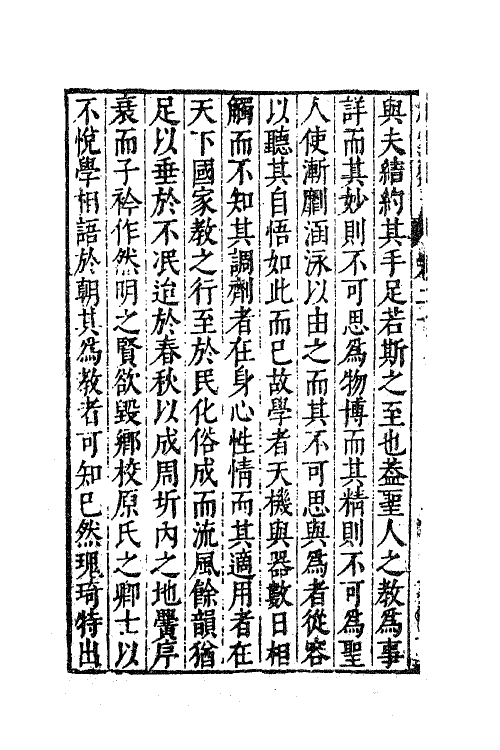 與夫結約其手足若斯之至也葢聖人之教為事
詳而其妙則不可思為物博而其精則不可為聖
人使漸劘涵泳以由之而其不可思與為者從容
以聽其自悟如此而已故學者天機與器數日相
觸而不知其調劑者在身心性情而其適用者在
天下國家教之行至於民化俗成而流風餘韻猶
足以垂於不泯迨於春秋以成周圻內之地黌序
衰而子衿作然明之賢欲毀鄉校原氏之卿士以
不悅學相語於朝其為教者可知已然瑰琦特出